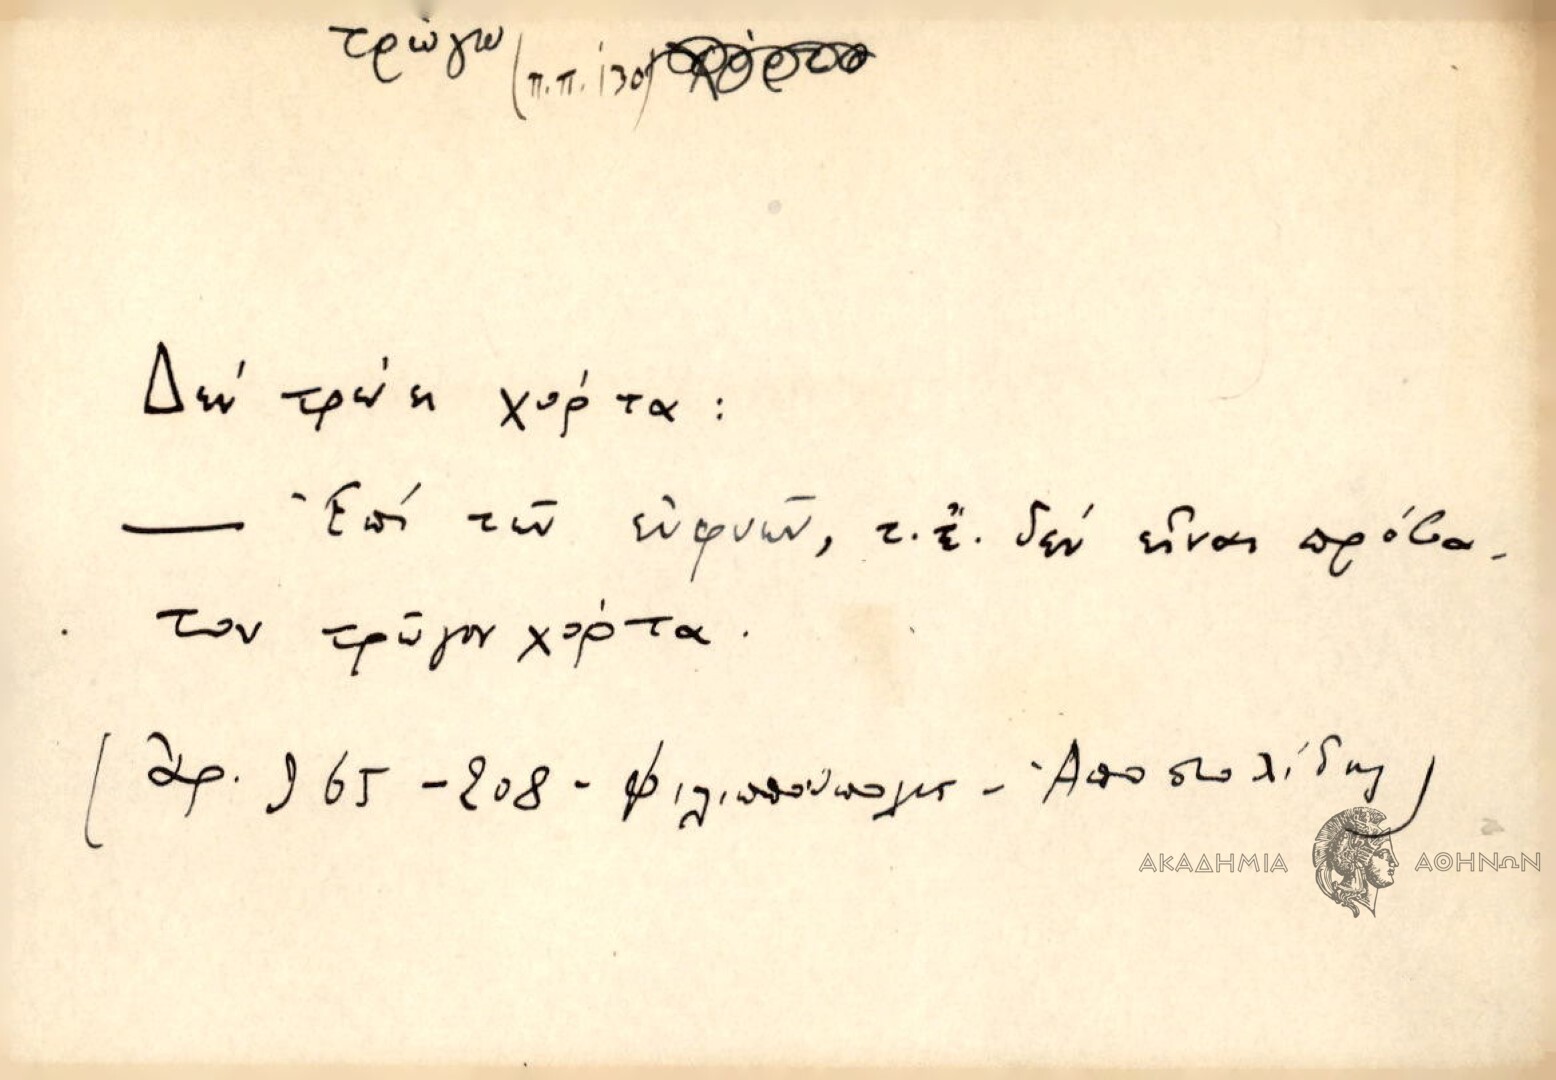 τρώγω (π.π. 130)
Δέν τρώει χόρτα:
— Ἐπί τῶν εὐφυῶν, τ.ἔ. δέν εἶναι πρόβα-
τον τρῶγον χόρτα.
(Ἀρ. 965 - 208 - Φιλιππούπολις - Ἀποστολίδης)
ΑΚΑΔΗΜΙΑ ΑΘΗΝΩΝ